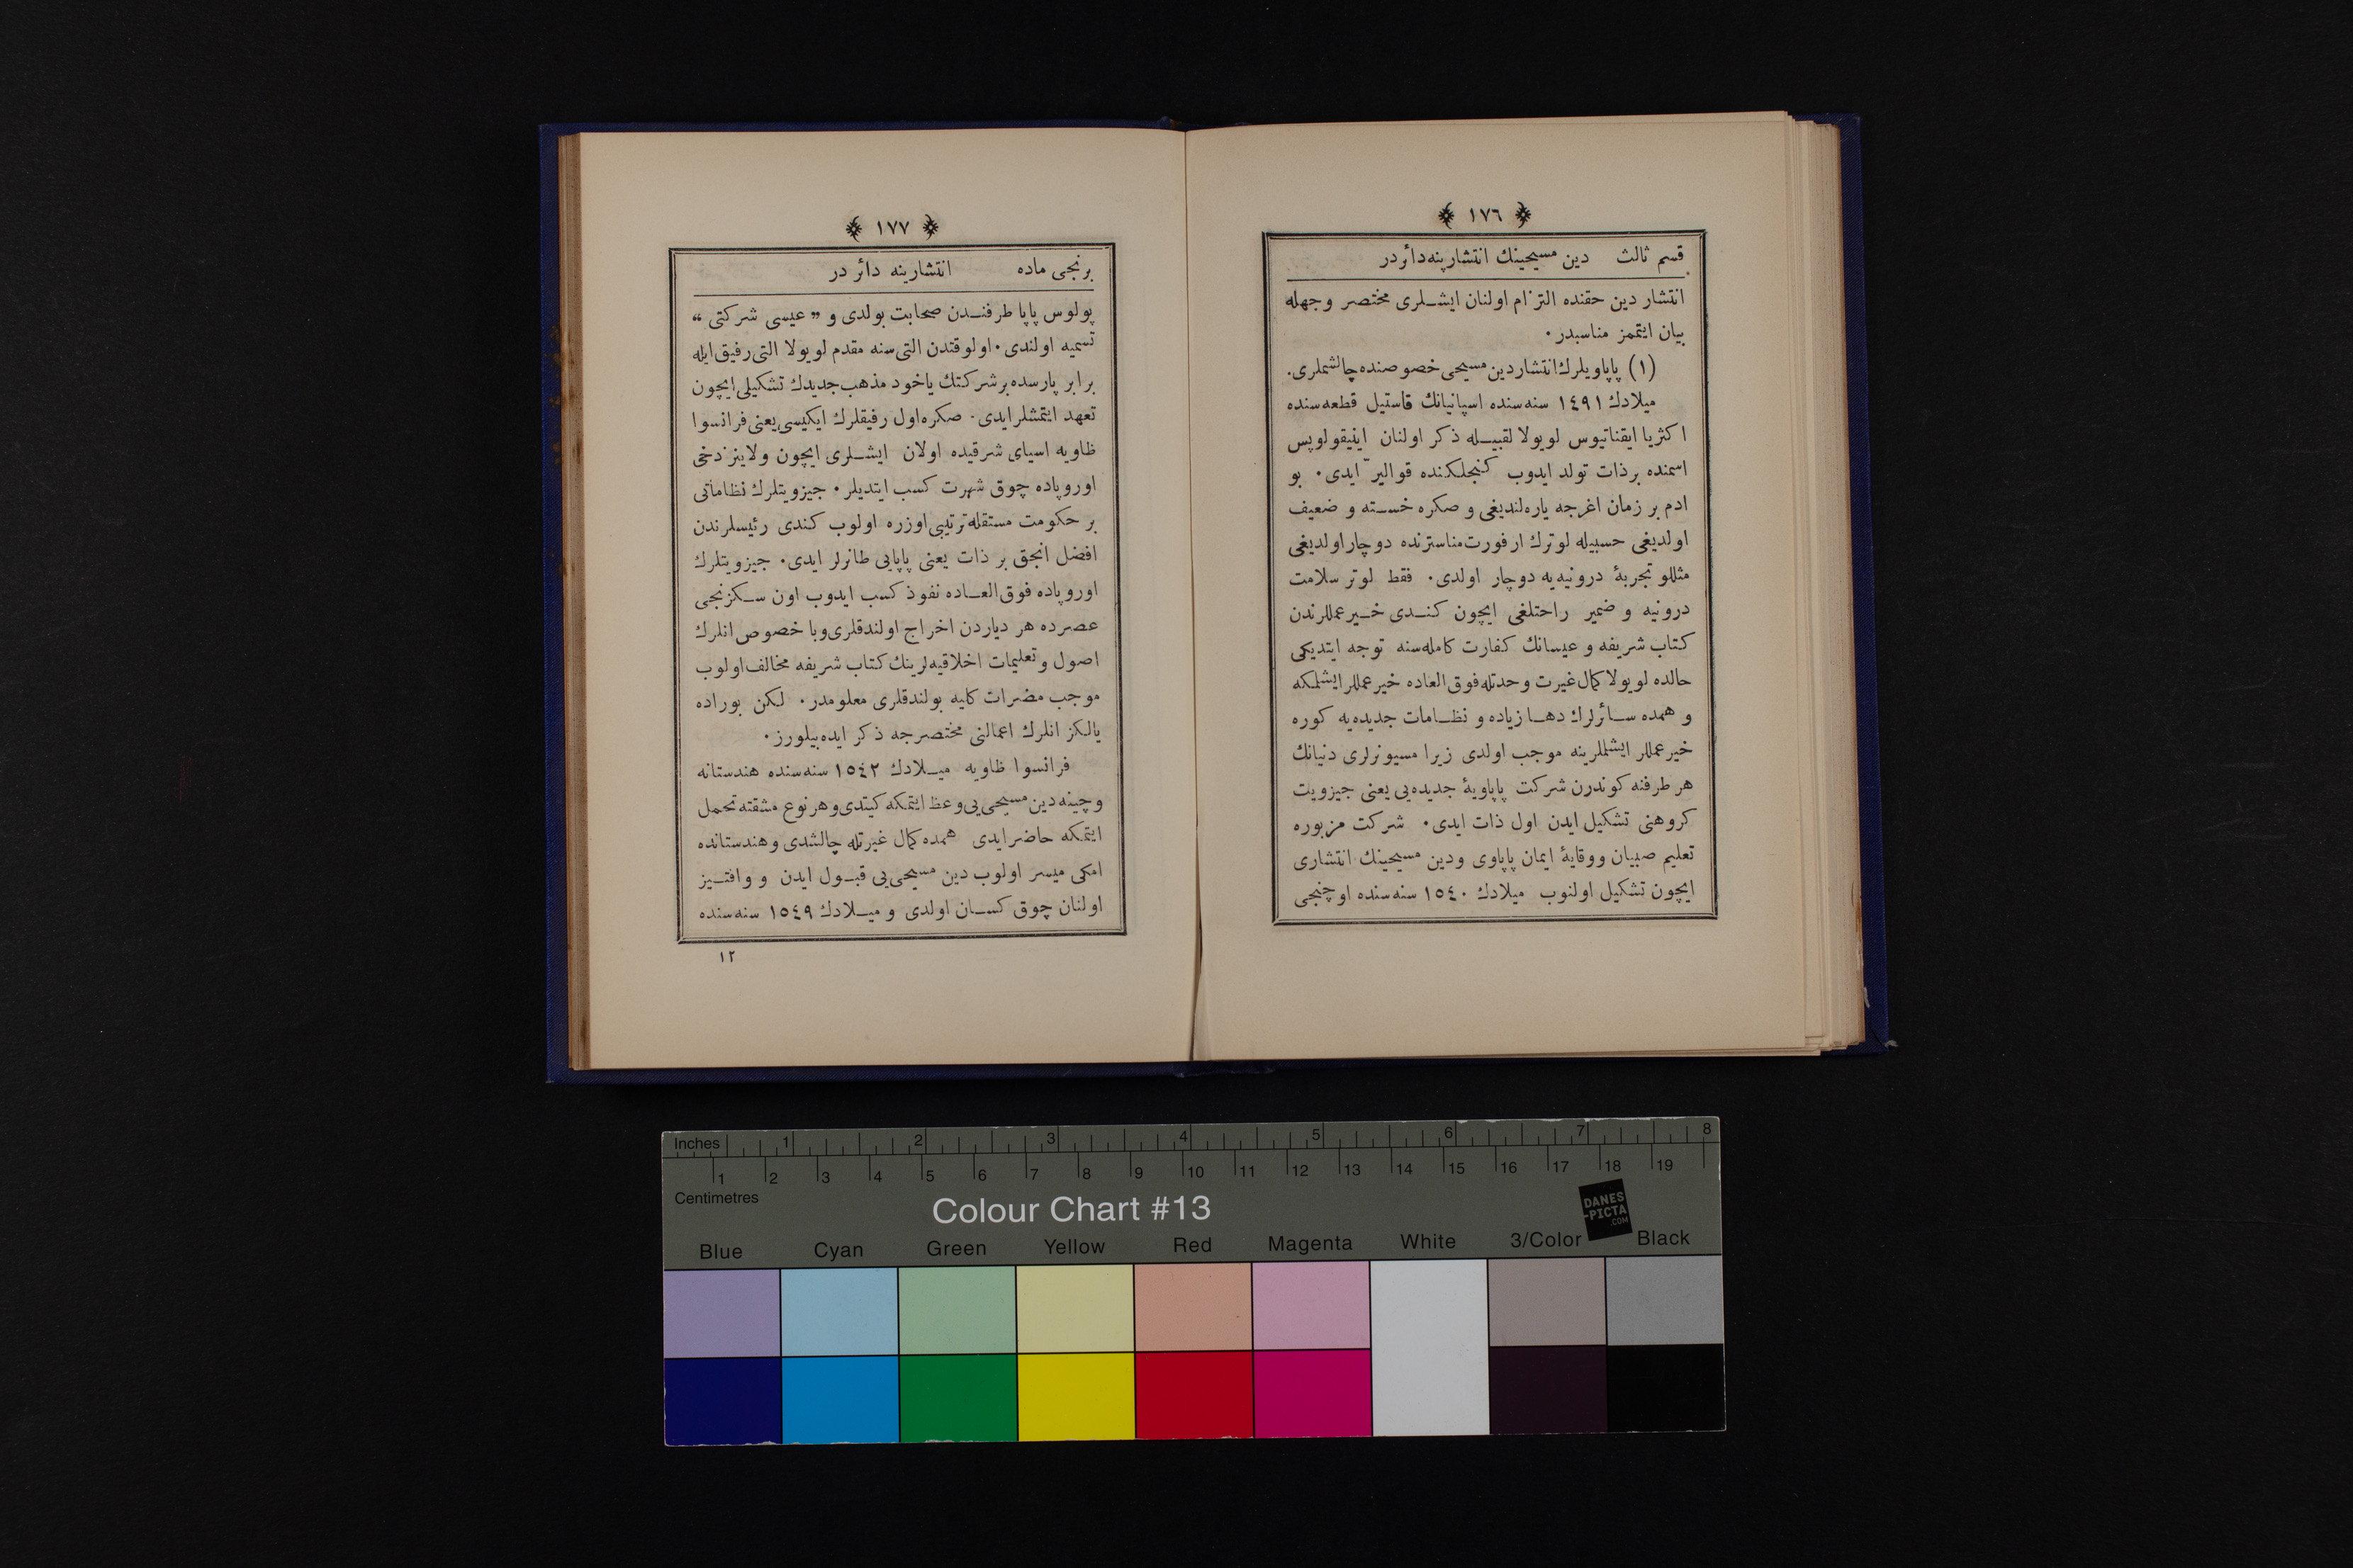 ﴿ ١٧٦ ﴾
قسم ثالث دین مسیحینك انتشارینه دائردر
انتشار دین حقنده التزام اولنان ایشلری مختصر وجهله
بیان ایتممز مناسبدر٠
(١) پاپاویلرك انتشار دین مسیحی خصوصنده چالشملری.
میلادك ١٤٩١ سنه سنده اسپانیانك قاستیل قطعه سنده
اكثریا ایقناتیوس لویولا لقبیله ذكر اولنان اینیقولوپس
اسمنده برذات تولد ایدوب كنجلكنده قوالیر ایدی٠ بو
ادم بر زمان اغرجه یاره لندیغی و صكره خسته و ضعیف
اولدیغی حسبیله لوترك ارفورت مناسترنده دوچار اولدیغی
مثللو تجربهٔ درونیه یه دوچار اولدی٠ فقط لوتر سلامت
درونیه و ضمیر راحتلغی ایچون كندی خیر عمللرندن
كتاب شریفه و عیسانك كفارت كامله سنه توجه ایتدیكی
حالده لویولا كمال غیرت وحدتله فوق العاده خیر عمللر ایشلمكه
و همده سائرلرك دها زیاده و نظامات جدیده یه كوره
خیر عمللر ایشلملرینه موجب اولدی زیرا مسیونرلری دنیانك
هر طرفنه كوندرن شركت پاپاویهٔ جدیده یی یعنی جیزویت
كروهنی تشكیل ایدن اول ذات ایدی٠ شركت مزبوره
تعلیم صبیان ووقایهٔ ایمان پاپاوی ودین مسیحینك انتشاری
ایچون تشكیل اولنوب میلادك ١٥٤٠ سنه سنده اوچنجی
﴿ ١٧٧ ﴾
برنجی ماده انتشارینه دائر در
پولوس پاپا طرفندن صحابت بولدی و ”عیسی شركتی“
تسمیه اولندی٠ اولوقتدن التی سنه مقدم لویولا التی رفیق ایله
برابر پارسده بر شركتك یاخود مذهب جدیدك تشكیلی ایچون
تعهد ایتمشلر ایدی٠ صكره اول رفیقلرك ایكیسی یعنی فرانسوا
ظاویه اسیای شرقیده اولان ایشلری ایچون ولاینز دخی
اوروپاده چوق شهرت كسب ایتدیلر٠ جیزویتلرك نظاماتی
بر حكومت مستقله ترتیبی اوزره اولوب كندی رئیسلرندن
افضل انجق بر ذات یعنی پاپایی طانرلر ایدی٠ جیزویتلرك
اوروپاده فوق العاده نفوذ كسب ایدوب اون سكزنجی
عصرده هر دیاردن اخراج اولندقلری وبا خصوص انلرك
اصول وتعلیمات اخلاقیه لرینك كتاب شریفه مخالف اولوب
موجب مضرات كلیه بولندقلری معلومدر٠ لكن بوراده
یالكز انلرك اعمالنی مختصرجه ذكر ایده بیلورز٠
فرانسوا ظاویه میلادك ١٥٤٢ سنه سنده هندستانه
وچینه دین مسیحی یی وعظ ایتمكه كیتدی وهر نوع مشقته تحمل
ایتمكه حاضر ایدی همده كمال غیرتله چالشدی وهندستانده
امكی میسر اولوب دین مسیحی یی قبول ایدن و وافتیز
اولنان چوق كسان اولدی و میلادك ١٥٤٩ سنه سنده
١٢
Inches 1 2 3 4 5 6 7 8
1 2 3 4 5 6 7 8 9 10 11 12 13 14 15 16 17 18 19
Centimetres
Colour Chart #13
DANES
-PICTA
.COM
Blue Cyan Green Yellow Red Magenta White 3/Color Black